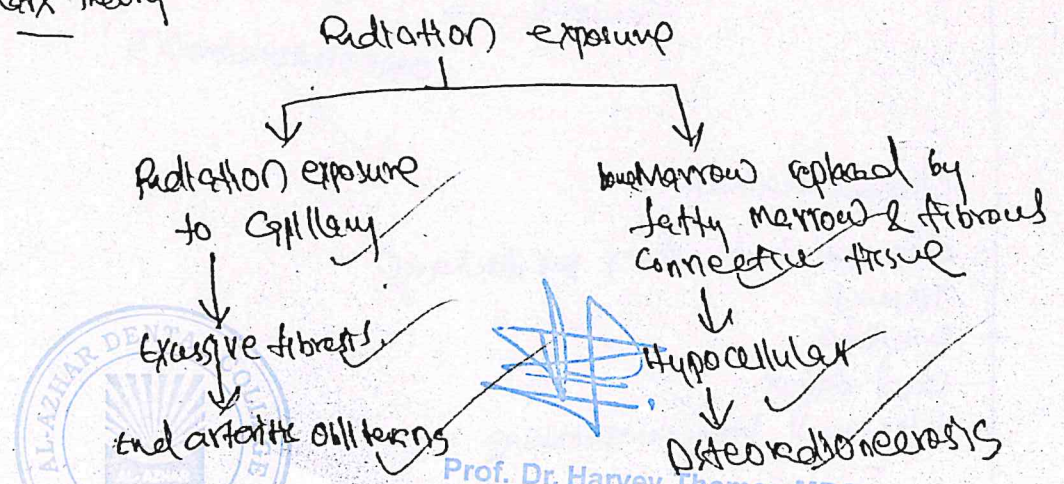 Theory
Radiation exposure
Radiation exposure
to Capillary
Excessive fibrosis.
End arteritis obliterans
bone Marrow replaced by
fatty marrow & fibrous
Connective tissue
Hypocellular
Osteoradionecrosis
AL-AZHAR DENTAL COLLEGE
Prof. Dr. Harvey Thomas